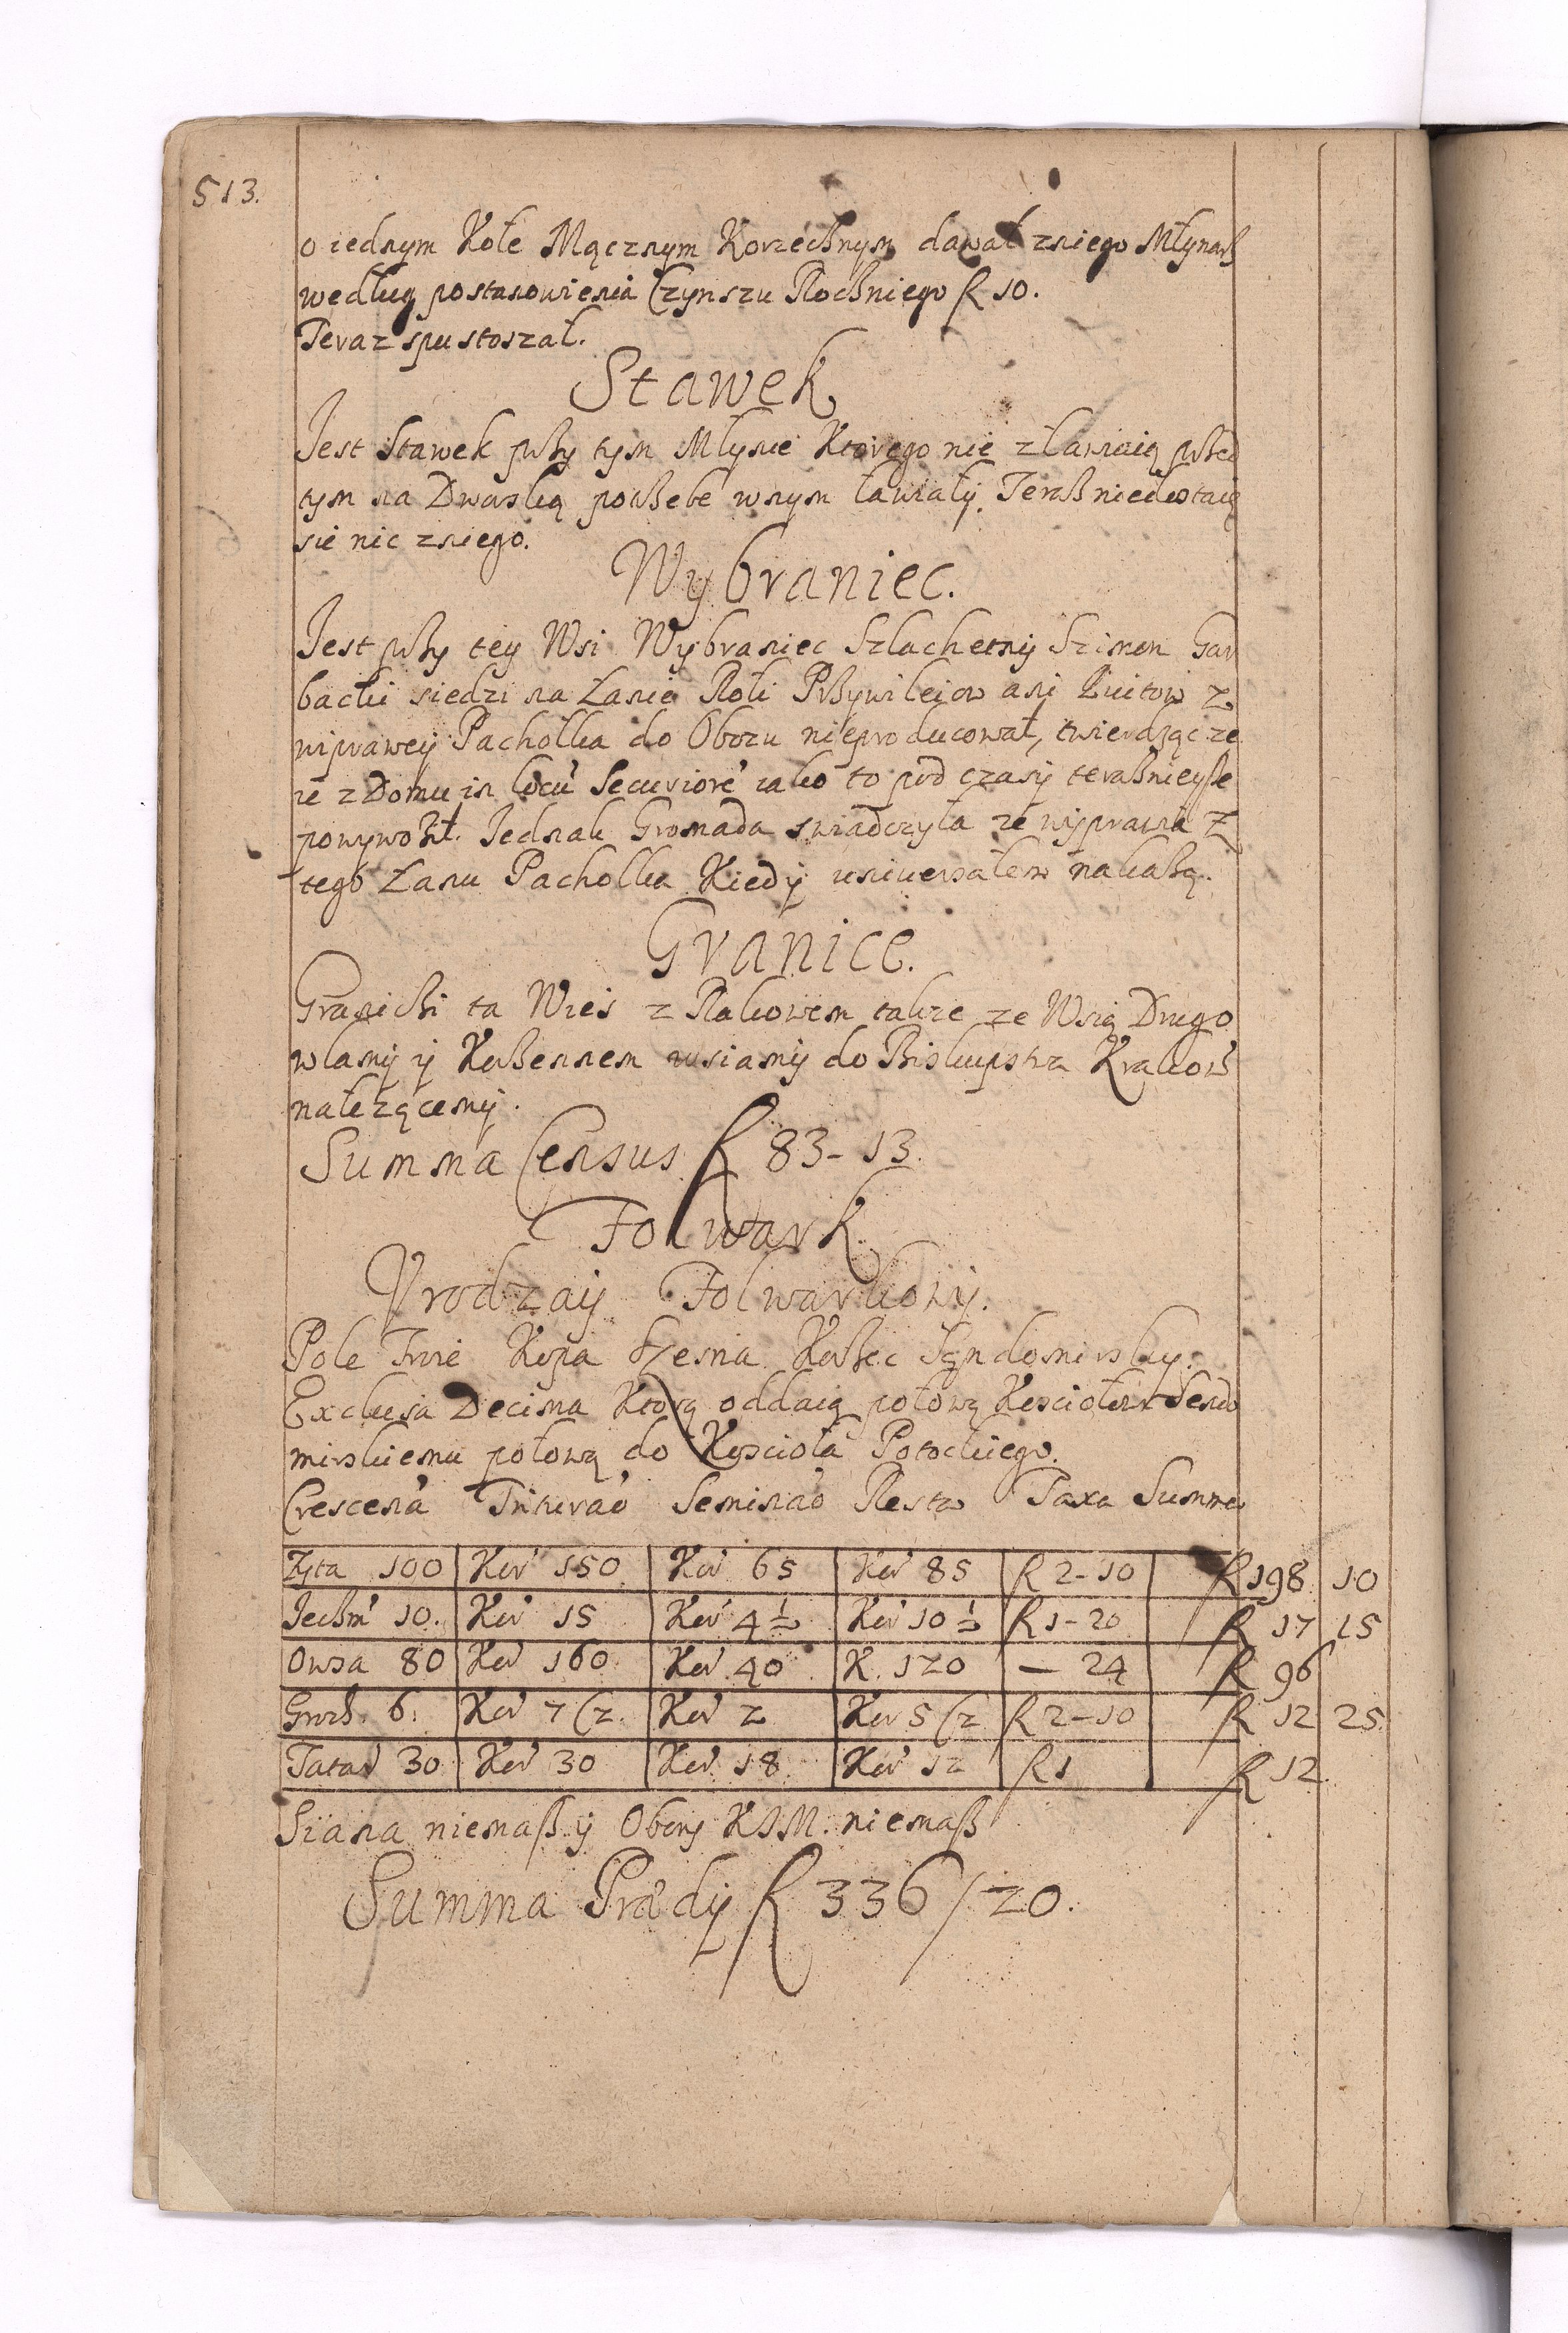 513.
o iednym Kole Mącznym Korzecżnym dawał zniego Młynarż
według postanowienia Czynszu Rocżniego R 10.
Teraz spustoszał.
Stawek
Jest Stawek pży tym Młynie Ktorego nie zławiaią pżed
tym na Dworską potżebe wnymławiały. Teraż niedostaię
sie nic zniego.
Wybraniec.
Jest pży tey Wsi Wybraniec Szlachetny Szimon Gar
backi siedzi na Łanie Roli Pżywileiow ani Kwitow z
wiprawey Pachołka do Obozu nieproducował, twierdząc ze
ie z Domu in locu' Securiore' iako to pod czasy teraźnieyße
powywoźił. Jednak Gromada swiadczyła ze wyprawia z
tego Łanu Pachołka Kiedy uniwersałem nakażą.
Granice.
Granicżi ta Wieś z Rakowem takze ze Wsią Drugo
wlamy y Korżennem wsiamy do Biskupstwa Krakow'
nalezącemy.
Summa Census R 83-13.
Folwark
Vrodzay Folwarkowy.
Pole Trzie Kopa Szesna Korżec Sęndomirsky.
Exclusa Decima Ktorą oddaią połowę Kosciołowi Sendo
mirskiemu połowę do Koscioła Potockiego.
Crescen'a Triturao' Seminao' Resta Taxa Summa
Zyta 100 Kor' 150 Kor' 65 Kor' 85 R 2-10 R 198 10
Jecżm' 10. Kor' 15 Kor' 4½ Kor' 10½ R 1-20 R 17 15
Owsa 80 Kor' 160 Kor' 40 K. 120 — 24 R 96
Groch. 6. Kor' 7 Cz. Kor' 2 Kor 5 Cz R 2-10 R 12 25
Tatar' 30 Kor' 30 Kor' 18. Kor' 12 R 1 R 12.
Siana niemaß y Obory KJM. niemaß
Summa Prædij R 336/20.